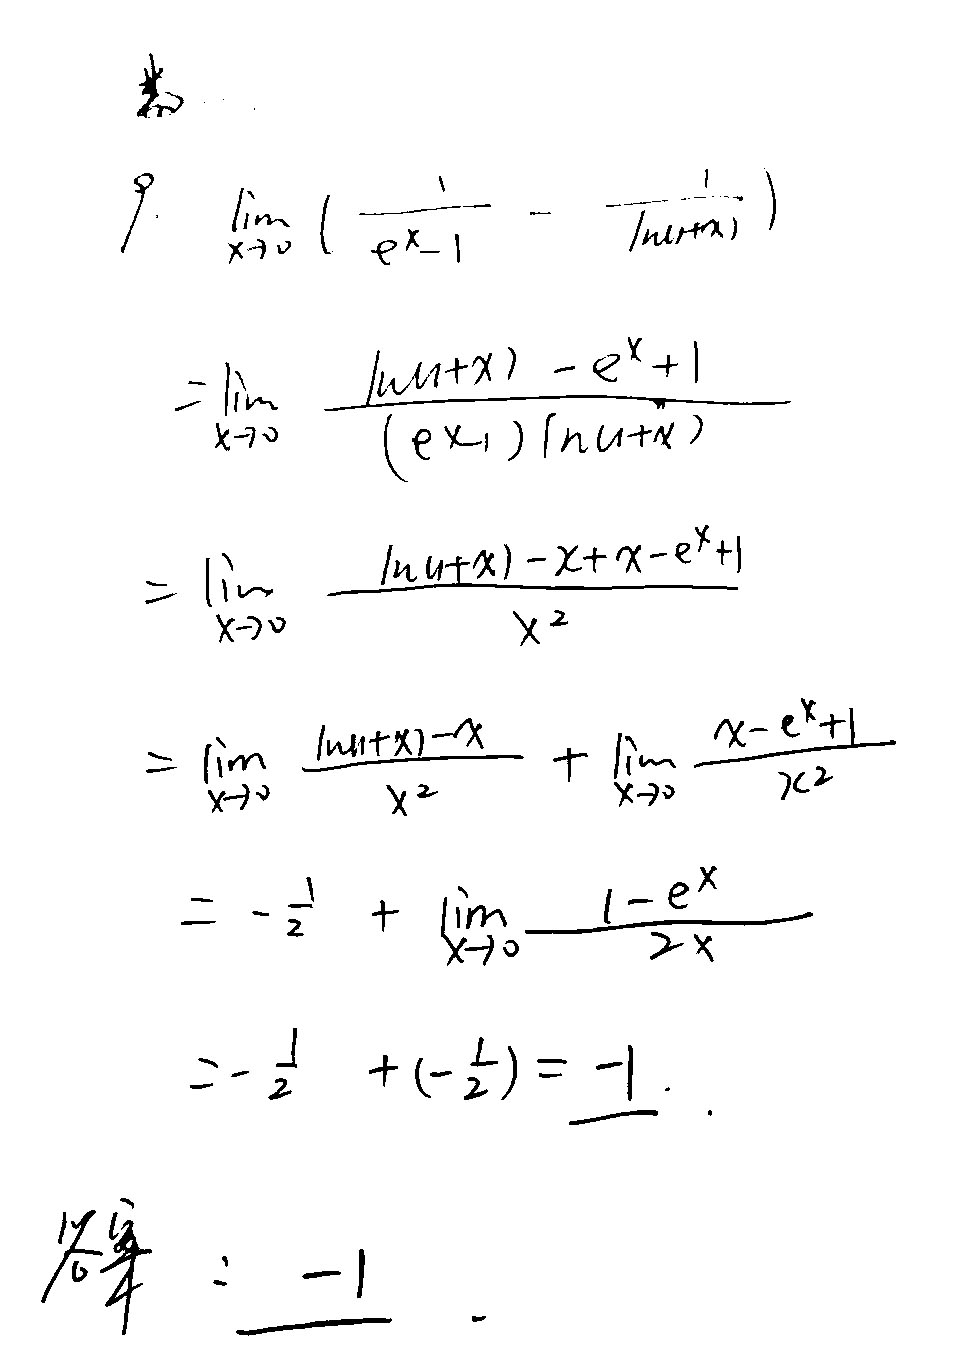 9. lim x→0 ( 1/(e^x-1) - 1/ln(1+x) )
= lim x→0 (ln(1+x) - e^x+1)/((e^x-1) ln(1+x))
= lim x→0 (ln(1+x) - x+x-e^x+1)/x^2
= lim x→0 (ln(1+x)-x)/x^2 + lim x→0 (x-e^x+1)/x^2
= -1/2 + lim x→0 (1-e^x)/2x
= -1/2 +(-1/2) = -1.
答案: -1.